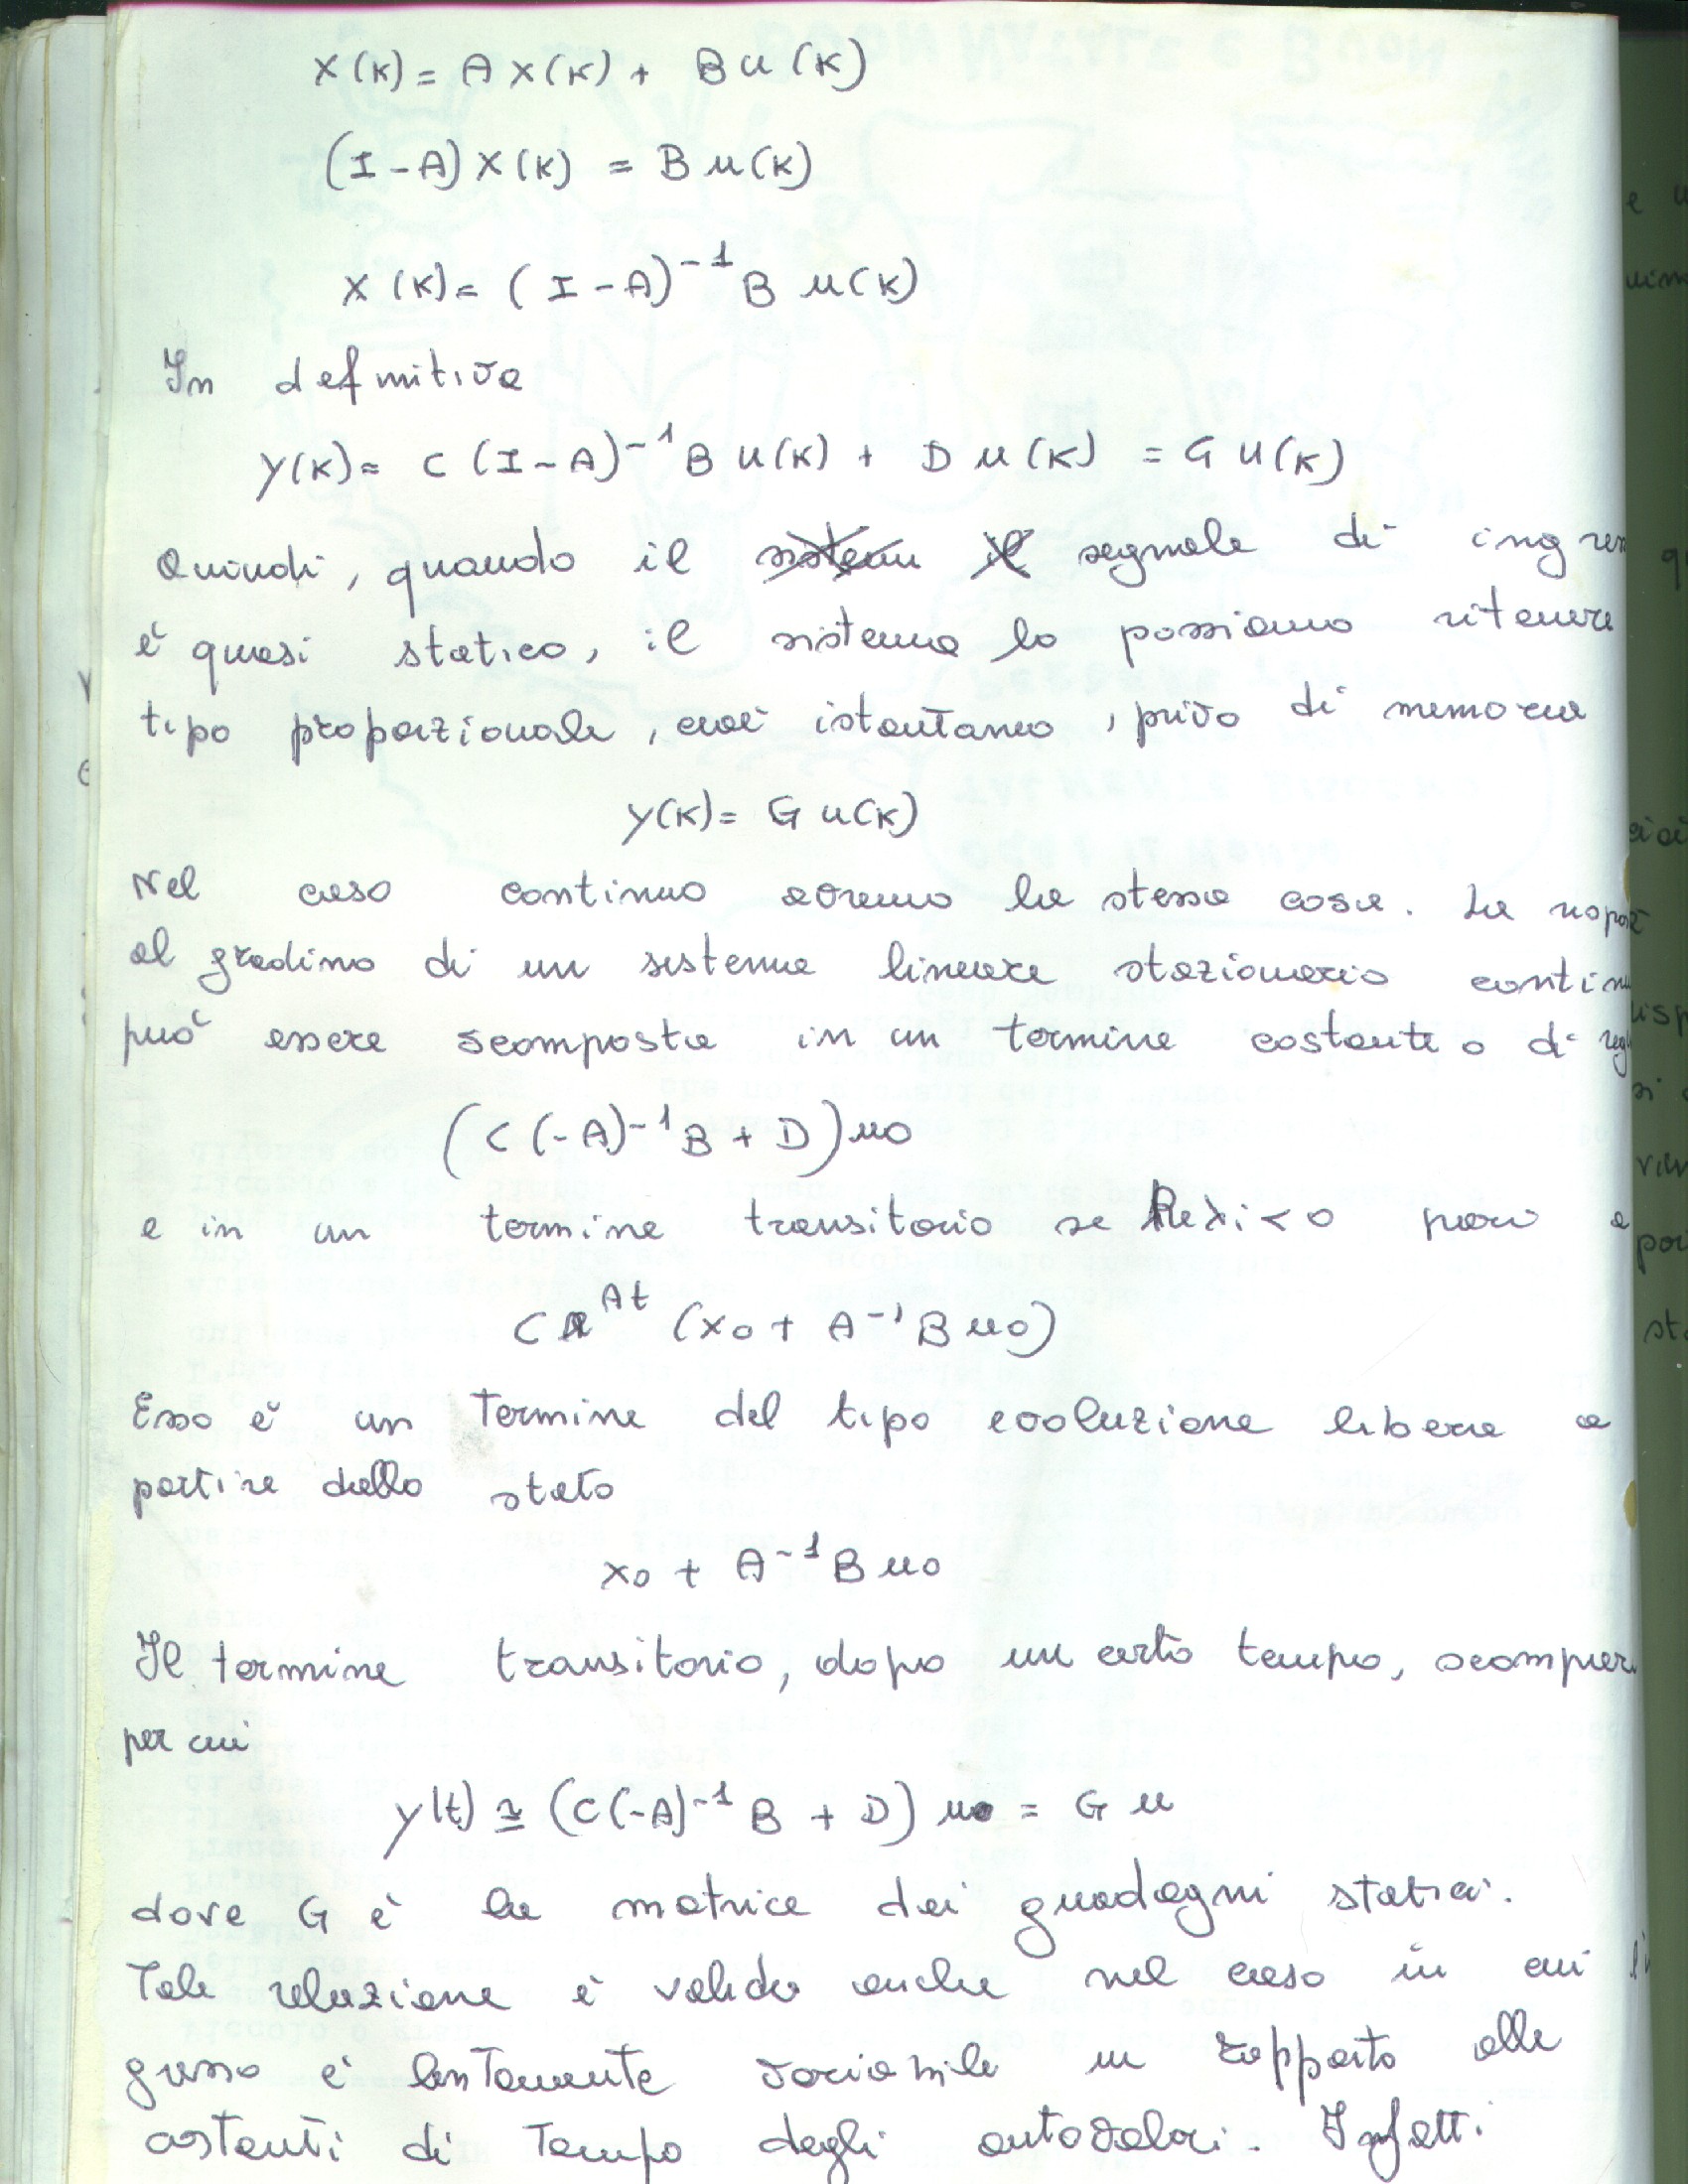 X(K) = A X(K) + B u(K)
(I - A) X(K) = B u(K)
X(K) = (I - A)^-1 B u(K)
In definitiva
Y(K) = C (I - A)^-1 B u(K) + D u(K) = G u(K)
Quindi, quando il sistema il segnale di ingres
è quasi statico, il sistema lo possiamo ritenere
tipo proporzionale, cioè istantaneo, privo di memoria
Y(K) = G u(K)
Nel caso continuo avremo la stessa cosa. La rispost
al gradino di un sistema lineare stazionario continu
può essere scomposta in un termine costante o di reg
(C (-A)^-1 B + D) u0
e in un termine transitorio se Re λi < 0 pari a
C e^At (x0 + A^-1 B u0)
Esso è un termine del tipo evoluzione libera a
partire dallo stato
x0 + A^-1 B u0
Il termine transitorio, dopo un certo tempo, scompare
per cui
y(t) ≅ (C (-A)^-1 B + D) u0 = G u
dove G è la matrice dei guadagni statici.
Tale relazione è valida anche nel caso in cui l'i
gresso è lentamente variabile in rapporto alle
costanti di tempo degli autovalori. Infatti